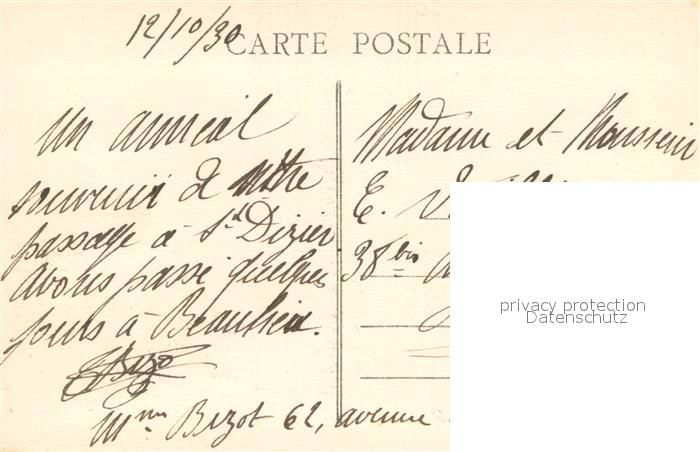 12/10/30
CARTE POSTALE
Un amical
souvenir de notre
passage à St Dizier
Avons passé quelques
jours à Beaulieu.
Bizot
Mme Bizot 62, avenue
Madame et Monsieur
E. V
38 bis
privacy protection
Datenschutz